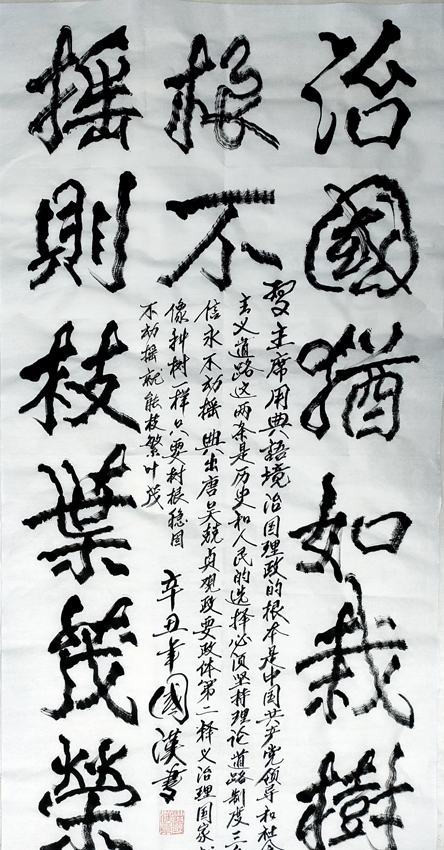 治國猶如栽樹
根不
搖則枝葉茂榮
習主席用典語境 治国理政的根本是中国共产党领导和社会
主义道路这两条是历史和人民的选择必须坚持理论道路制度三
信永不动摇 典出唐吴兢贞观政要政体第二释义治理国家
像种树一样只要树根稳固
不动摇就能枝繁叶茂
辛丑年國漢書